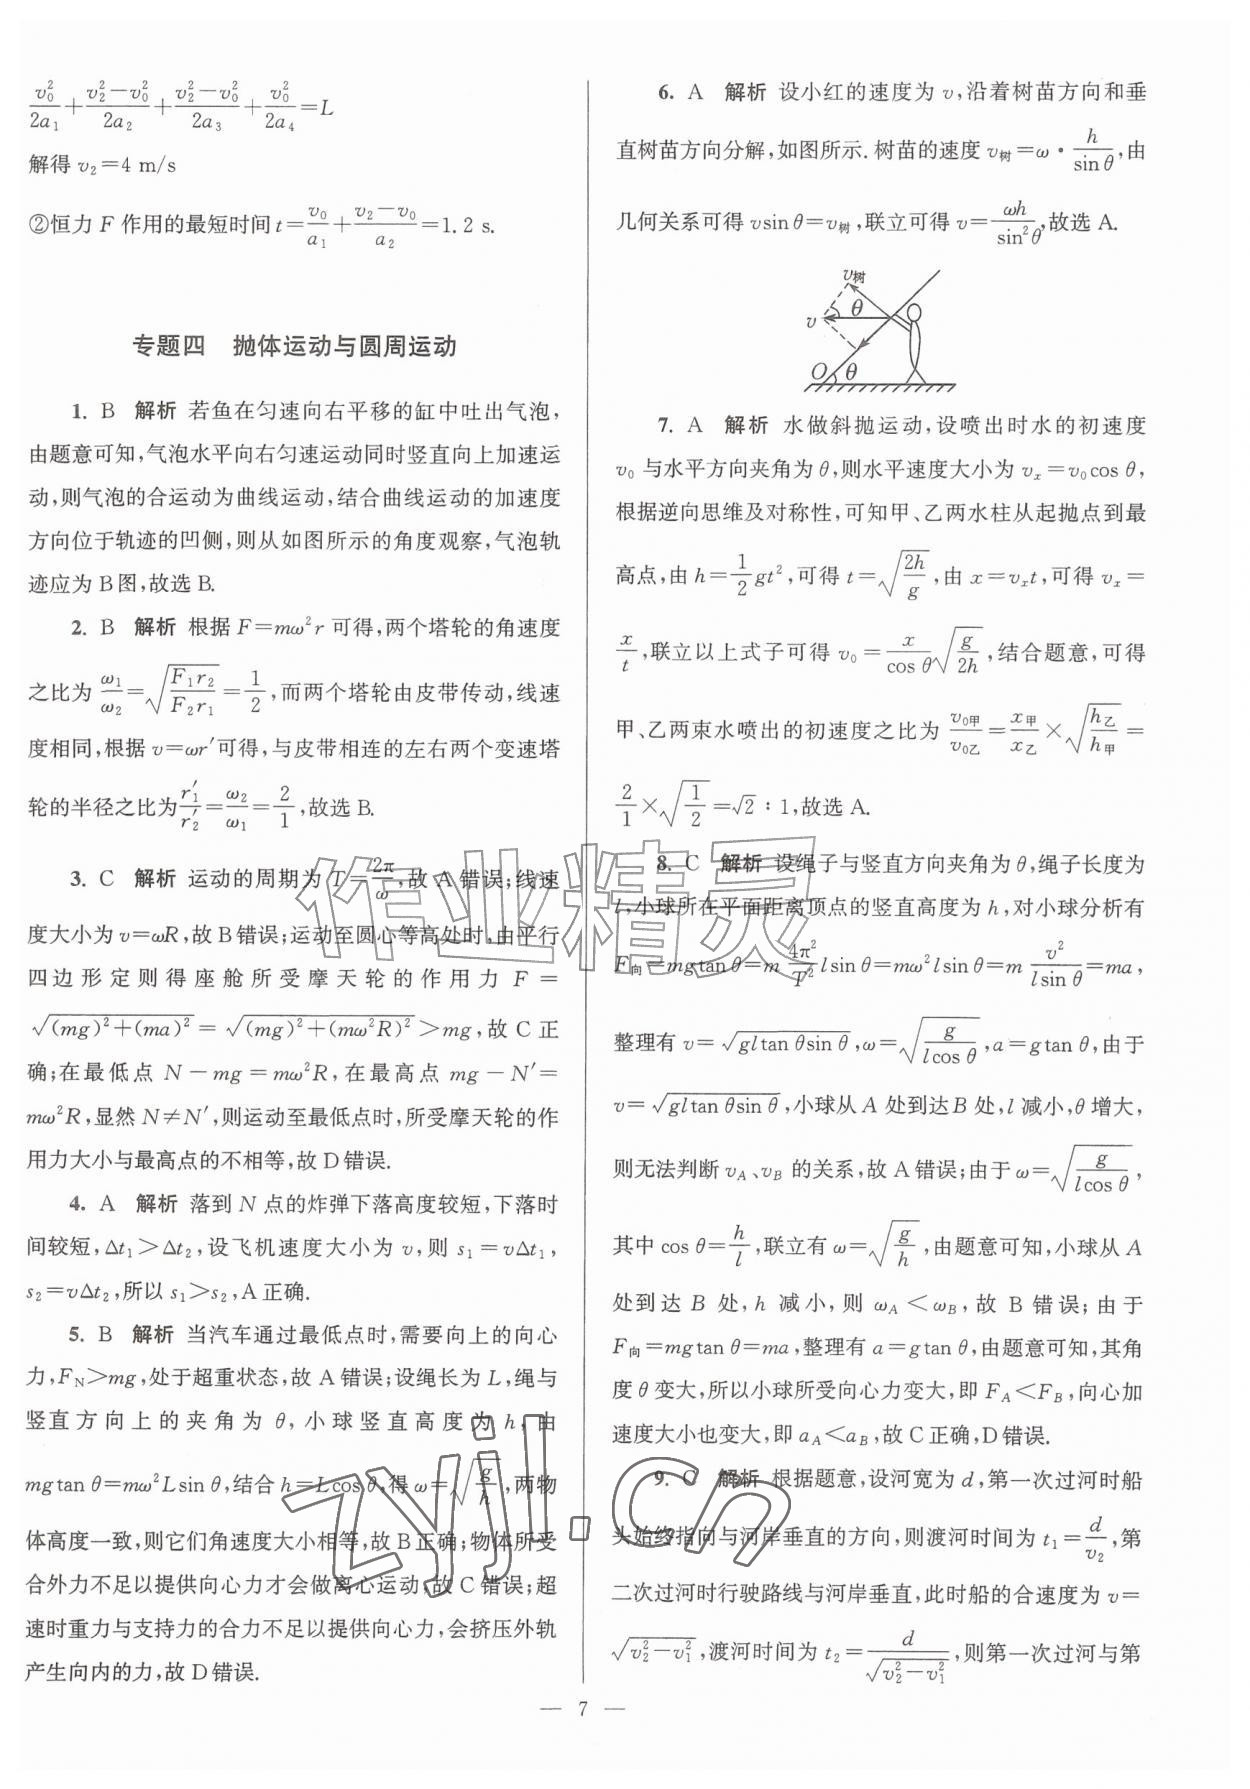 v₀²/2a₁+(v₂²−v₀²)/2a₂+(v₂²−v₀²)/2a₃+v₀²/2a₄=L
解得 v₂=4 m/s
②恒力 F 作用的最短时间 t=v₀/a₁+(v₂−v₀)/a₂=1.2 s.
专题四　抛体运动与圆周运动
1. B　解析　若鱼在匀速向右平移的缸中吐出气泡,
由题意可知,气泡水平向右匀速运动同时竖直向上加速运
动,则气泡的合运动为曲线运动,结合曲线运动的加速度
方向位于轨迹的凹侧,则从如图所示的角度观察,气泡轨
迹应为 B 图,故选 B.
2. B　解析　根据 F=mω²r 可得,两个塔轮的角速度
之比为 ω₁/ω₂=√(F₁r₂/F₂r₁)=1/2,而两个塔轮由皮带传动,线速
度相同,根据 v=ωr′可得,与皮带相连的左右两个变速塔
轮的半径之比为 r₁′/r₂′=ω₂/ω₁=2/1,故选 B.
3. C　解析　运动的周期为 T=2π/ω,故 A 错误;线速
度大小为 v=ωR,故 B 错误;运动至圆心等高处时,由平行
四边形定则得座舱所受摩天轮的作用力 F=
√((mg)²+(ma)²)=√((mg)²+(mω²R)²)>mg,故 C 正
确;在最低点 N−mg=mω²R,在最高点 mg−N′=
mω²R,显然 N≠N′,则运动至最低点时,所受摩天轮的作
用力大小与最高点的不相等,故 D 错误.
4. A　解析　落到 N 点的炸弹下落高度较短,下落时
间较短,Δt₁>Δt₂,设飞机速度大小为 v,则 s₁=vΔt₁,
s₂=vΔt₂,所以 s₁>s₂,A 正确.
5. B　解析　当汽车通过最低点时,需要向上的向心
力,F_N>mg,处于超重状态,故 A 错误;设绳长为 L,绳与
竖直方向上的夹角为 θ,小球竖直高度为 h,由
mgtan θ=mω²Lsin θ,结合 h=Lcos θ,得 ω=√(g/h),两物
体高度一致,则它们角速度大小相等,故 B 正确;物体所受
合外力不足以提供向心力才会做离心运动,故 C 错误;超
速时重力与支持力的合力不足以提供向心力,会挤压外轨
产生向内的力,故 D 错误.
6. A　解析　设小红的速度为 v,沿着树苗方向和垂
直树苗方向分解,如图所示.树苗的速度 v树=ω·h/sin θ,由
几何关系可得 vsin θ=v树,联立可得 v=ωh/sin²θ,故选 A.
v树
θ
v
O θ
7. A　解析　水做斜抛运动,设喷出时水的初速度
v₀ 与水平方向夹角为 θ,则水平速度大小为 vₓ=v₀cos θ,
根据逆向思维及对称性,可知甲、乙两水柱从起抛点到最
高点,由 h=1/2gt²,可得 t=√(2h/g),由 x=vₓt,可得 vₓ=
x/t,联立以上式子可得 v₀=x/cos θ√(g/2h),结合题意,可得
甲、乙两束水喷出的初速度之比为 v₀甲/v₀乙=x甲/x乙×√(h乙/h甲)=
2/1×√(1/2)=√2∶1,故选 A.
8. C　解析　设绳子与竖直方向夹角为 θ,绳子长度为
l,小球所在平面距离顶点的竖直高度为 h,对小球分析有
F向=mgtan θ=m 4π²/T² lsin θ=mω²lsin θ=m v²/lsin θ=ma,
整理有 v=√(gltan θsin θ),ω=√(g/lcos θ),a=gtan θ,由于
v=√(gltan θsin θ),小球从 A 处到达 B 处,l 减小,θ 增大,
则无法判断 v_A、v_B 的关系,故 A 错误;由于 ω=√(g/lcos θ),
其中 cos θ=h/l,联立有 ω=√(g/h),由题意可知,小球从 A
处到达 B 处,h 减小,则 ω_A<ω_B,故 B 错误;由于
F向=mgtan θ=ma,整理有 a=gtan θ,由题意可知,其角
度 θ 变大,所以小球所受向心力变大,即 F_A<F_B,向心加
速度大小也变大,即 a_A<a_B,故 C 正确,D 错误.
9. C　解析　根据题意,设河宽为 d,第一次过河时船
头始终指向与河岸垂直的方向,则渡河时间为 t₁=d/v₂,第
二次过河时行驶路线与河岸垂直,此时船的合速度为 v=
√(v₂²−v₁²),渡河时间为 t₂=d/√(v₂²−v₁²),则第一次过河与第
— 7 —
作业精灵
zyjl.cn